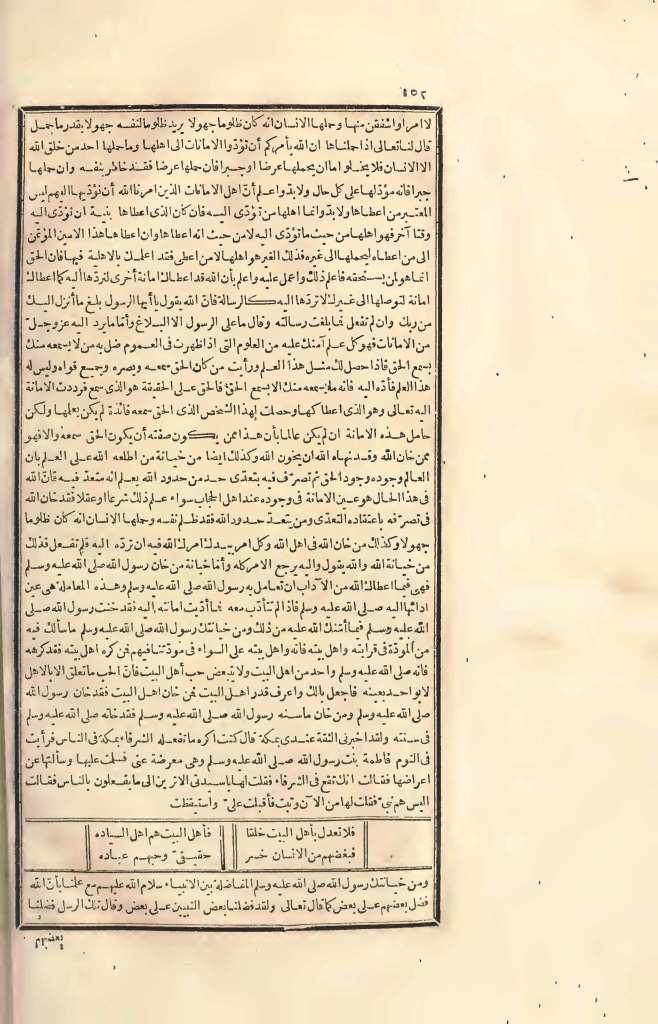 ١٥٢
لا امر او اشفقن منها وحملها الانسان انه كان ظلوما جهولا يريد ظلوما لنفسه جهولا بقدر ما حمل
قال لنا تعالى اذا حملناها ان الله يأمركم أن تؤدوا الامانات الى اهلها وما حملها احد من خلق الله
الا الانسان فلا يخلو اما ان يحملها عرضا او جبرا فان حملها عرضا فقد خاطر بنفسه وان حملها
جبرا فانه مؤدّ لها على كل حال ولا بدّ واعلم أنّ اهل الامانات الذين امرنا الله أن نؤدّيها اليهم ليس
المعتبر من اعطاها ولا بدّ وانما اهلها من تؤدّى اليه فان كان الذى اعطاها بنية ان تؤدّى اليه
وقتا آخر فهو اهلها من حيث ما تؤدّى اليه لا من حيث انه اعطاها وان اعطاها هذا الامين المؤتمن
الى من اعطاه ليحملها الى غيره فذلك الغير هو اهلها لا من اعطى فقد اعلمك بالاهلية فيها فان الحق
انما هو لمن يستحقه فاعلم ذلك واعمل عليه واعلم بأن الله قد اعطاك امانة أخرى لتردّها اليه كما اعطاك
امانة لتوصلها الى غيرك لا تردّها اليه كالرسالة فانّ الله يقول يا أيها الرسول بلغ ما أنزل اليك
من ربك وان لم تفعل فما بلغت رسالته وقال ما على الرسول الا البلاغ وأمّا ما يرد اليه عز وجلّ
من الامانات فهو كل علم آمنك عليه من العلوم التى اذا ظهرت فى العموم ضل به من لا يسمعه منك
بسمع الحق فاذا حصل لك مثل هذا العلم ورأيت من كان الحق سمعه وبصره وجميع قواه وليس له
هذا العلم فأدّه اليه فانه ما يسمعه منك الا بسمع الحق فالحق على الحقيقة هو الذى سمع فرددت الامانة
اليه تعالى وهو الذى اعطاكها وحصلت لهذا الشخص الذى الحق سمعه فائدة لم يكن يعلمها ولكن
حامل هذه الامانة ان لم يكن عالما بأن هذا ممن يكون صفته أن يكون الحق سمعه والا فهو
ممن خان الله وقد نهاه الله ان يخون الله وكذلك ايضا من خيانة من اطلعه الله على العلم بان
العالم وجوده وجود الحق ثم تصرّف فيه بتعدّى حد من حدود الله يعلم انه متعدّ فيه فانّ الله
فى هذا الحال هو عين الامانة فى وجوده عند اهل الحجاب سواء علم ذلك شرعا او عقلا فقد خان الله
فى تصرّفه باعتقاده التعدّى ومن يتعدّ حدود الله فقد ظلم نفسه وحملها الانسان انه كان ظلوما
جهولا وكذلك من خان الله فى اهل الله وكل امر بيدك امرك الله فيه ان تردّه اليه فلم تفعل فذلك
من خيانة الله والله يقول واليه يرجع الامر كله وأمّا خيانة من خان رسول الله صلى الله عليه وسلم
فهى فيما اعطاك الله من الآداب ان تعامل به رسول الله صلى الله عليه وسلم وهذه المعاملة هى عين
ادائها اليه صلى الله عليه وسلم فاذا لم تتأدّب معه فما أدّيت امانته اليه فقد خنت رسول الله صلى
الله عليه وسلم فيما أمنك الله عليه من ذلك ومن خيانتك رسول الله صلى الله عليه وسلم ما سألك فيه
من المودّة فى قرابته واهل بيته فانه واهل بيته على السواء فى مودّتنا فيهم فمن كره اهل بيته فقد كرهه
فانه صلى الله عليه وسلم واحد من اهل البيت ولا يتبعض حب أهل البيت فانّ الحب ما تعلق الا بالاهل
لا بواحد بعينه فاجعل بالك واعرف قدر اهل البيت فمن خان اهل البيت فقد خان رسول الله
صلى الله عليه وسلم ومن خان ما سنه رسول الله صلى الله عليه وسلم فقد خانه صلى الله عليه وسلم
فى سنته ولقد اخبرنى الثقة عندى بمكة قال كنت اكره ما تفعله الشرفاء بمكة فى الناس فرأيت
فى النوم فاطمة بنت رسول الله صلى الله عليه وسلم وهى معرضة عنى فسلمت عليها وسألتها عن
اعراضها فقالت انك تقع فى الشرفاء فقلت لها يا سيدتى الا ترين الى ما يفعلون بالناس فقالت
اليس هم بنىّ فقلت لها من الآن وتبت فأقبلت علىّ واستيقظت
فلا تعدل بأهل البيت خلقا فأهل البيت هم اهل السياده
فبغضهم من الانسان خسر حقيقىّ وحبهم عباده
ومن خيانتك رسول الله صلى الله عليه وسلم المفاضلة بين الانبياء سلام الله عليهم مع علمنا بأنّ الله
فضل بعضهم على بعض كما قال تعالى ولقد فضلنا بعض النبيين على بعض وقال تلك الرسل فضلنا
بعضهم